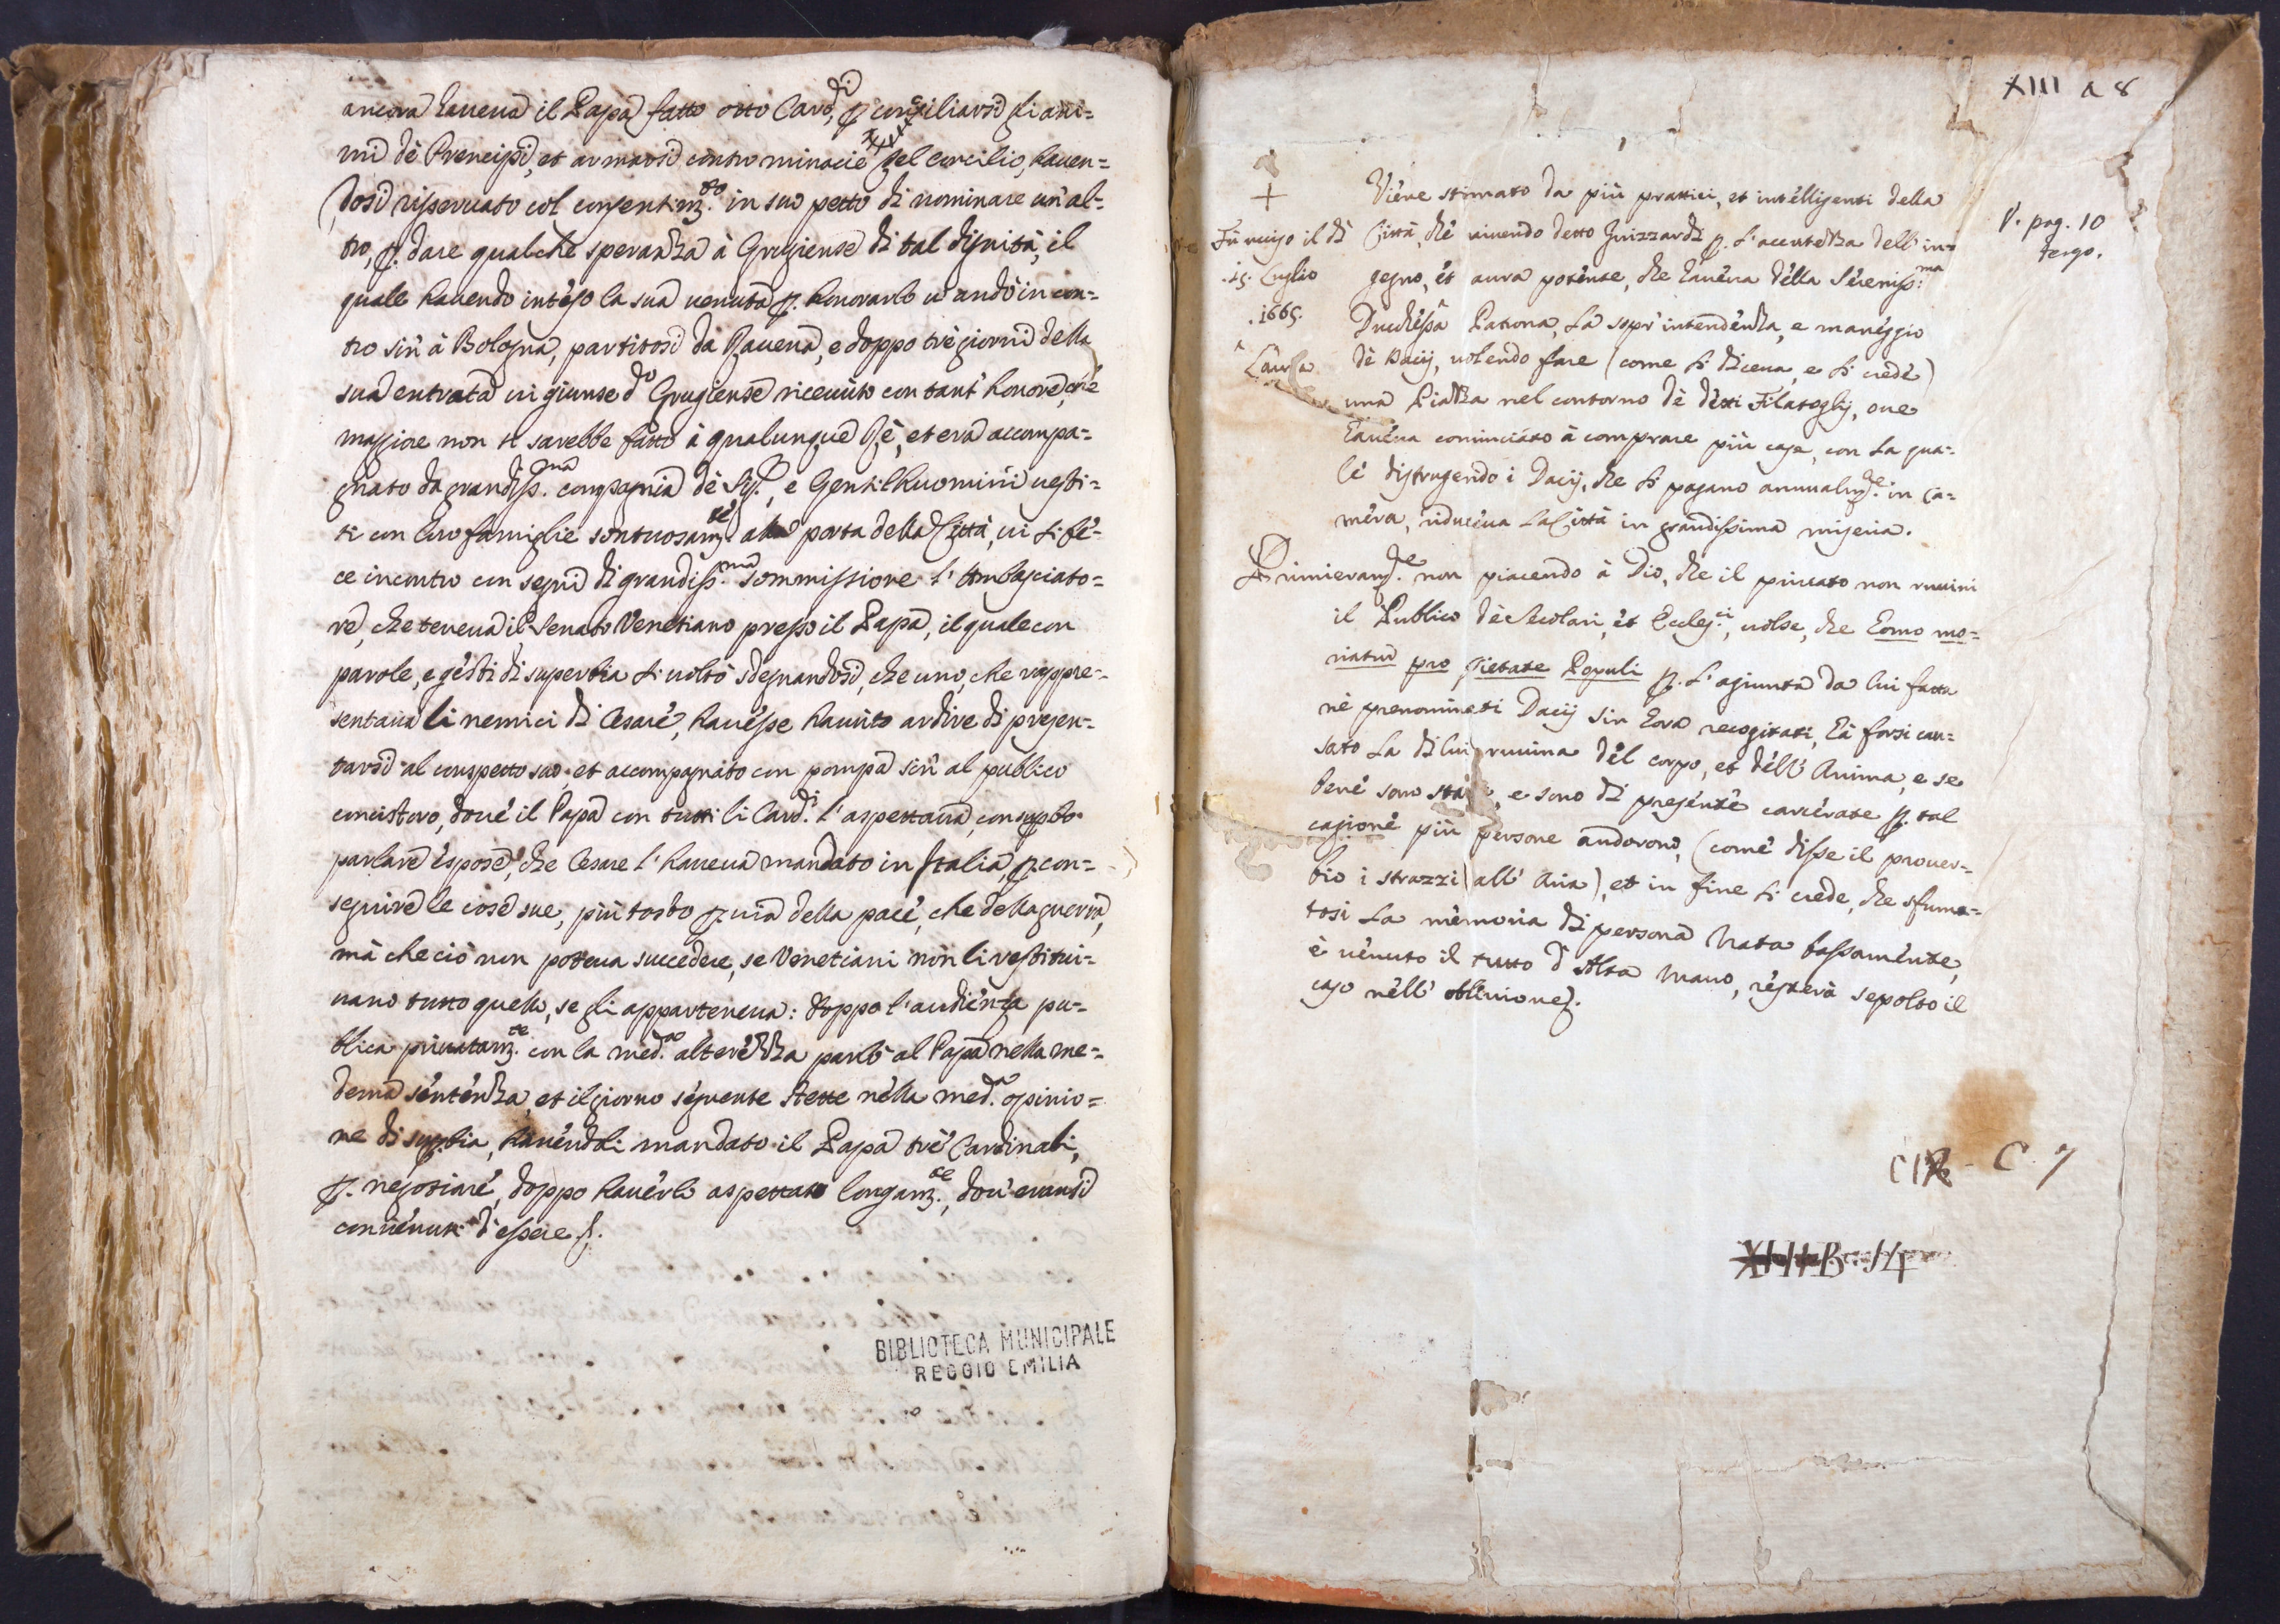 ancora haueua il Papa fatto otto Card.di, p. conciliarsi gli ani=
mi dè Prencipi, et armarsi contro minacie del Concilio, hauen=
dosi risservato col consentim.to in suo petto di nominare un'al=
tro, p. dare qualche speranza à Grugiense di tal dignità, il
quale hauendo inteso la sua uenuta p. honorarlo u'andò in con=
tro sin'à Bologna, partitosi da Rauena, e doppo trè giorni della
sua entrata ui giunse d.o Grugiense riceuuto con tant'honore, che
maggiore non si sarebbe fatto à qualunque Rè, et era accompa=
gnato da grandiss.ma compagnia dè Sig.ri, e Gentilhuomini uesti=
ti con loro famiglie sontuosam.te alla porta della Città, ui si fè=
ce incontro con segni di grandiss.ma sommissione l'Ambasciato=
re, che teneua il Senato Venetiano presso il Papa, il quale con
parole, e gesti di superbia si uoltò sdegnandosi, che uno, che rappre=
sentaua li nemici di Cesare, hauesse hauuto ardire di presen=
tarsi al conspetto suo, et accompagnato con pompa sin'al publico
concistoro, doue il Papa con tutti li Card.di l'aspettaua, con sup.bo
parlare espose, che Cesare l'haueua mandato in Italia, p. con=
seguire le cose sue, più tosto p. uia della pace, che della guerra,
mà che ciò non poteua succedere, se Venetiani non li restitui=
uano tutto quello, se gli apparteneua: doppo l'audienza pu=
blica priuatam.te con la med.ma alterezza parlò al Papa nella me=
dema sentenza, et il giorno seguente stette nella med.a opinio=
ne di sup.bia, hauendoli mandato il Papa trè Cardinali,
p. negotiare, doppo hauerlo aspettato longam.te, dou'eransi
conuenuti d'essere
BIBLIOTECA MUNICIPALE
REGGIO EMILIA
XIII a 8
V. pag. 10
tergo.
+
Fù ucciso il dì
15. Luglio
.1665.
Laura
Viene stimato da più prattici, et intelligenti della
Città, che uiuendo detto Guizzardi p. l'acutezza dell'in=
gegno, et aura potente, che haueua della Sereniss.ma
Duchessa Patrona, la sopr'intendenza, e maneggio
dè Dacij, uolendo fare (come si diceua, e si crede)
una Piazza nel contorno dè detti Filatoglij, oue
haueua cominciato à comprare più case, con la qua=
le distrugendo i Dacij, che si pagano annualm.te in Ca=
mera, riduceua la Città in grandissima miseria.
Primieram.te non piacendo à Dio, che il priuato non ruuini
il Publico dè Secolari, et Eccles.ci, uolse, che homo mo=
riatur pro pietate Populi p. l'agiunta da lui fatta
nè prenominati Dacij sin hora recogitati, hà forsi cau=
sato la di lui ruuina del corpo, et dell'Anima, e se
bene sono state, e sono di presente carcerate p. tal
cagione più persone andorono, (come disse il prouer=
bio i strazzi all'Aria) et in fine si crede, che sfuma=
tosi la memoria di persona Nata bassamente,
è uenuto il tutto d'Alta Mano, resterà sepolto il
caso nell'obliuione.
C. 7
XIII B 14